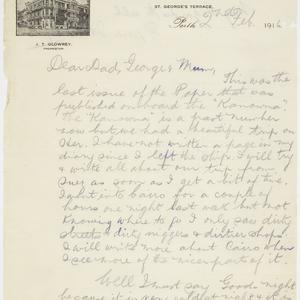 ST. GEORGE'S TERRACE,
Perth 2nd Feb. 1916
J. T. GLOWREY,
PROPRIETOR.
Dear Dad, George & Mum,
This was the
last issue of the Paper that was
published on board the "Kanowna".
The "Kanowna" is a past number
now but we had a beautiful trip on
her. I have not written a page in my
diary since I left the ship. I will try
& write all about our trip from
Suez as soon as I get a bit of time.
I went into Cairo for a couple of
hours one night last week but not
knowing where to go I only saw dirty
streets & dirty niggers & dirtier shops.
I will write more about Cairo when
I see more of the nicer parts of it.
Well I must say Good-night
because it is very cold